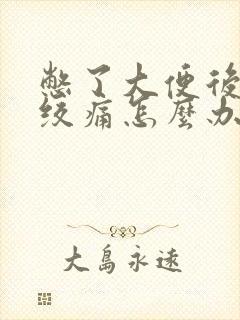 憋了大便後
绞痛怎麼办
大島永遠